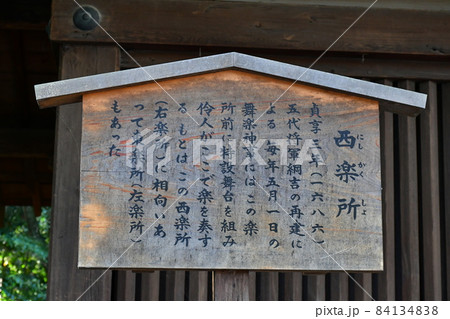 西楽所
にし がく しょ
貞享三年(一六八六)
五代将軍綱吉の再建に
よる 毎年五月一日の
舞楽神事にはこの楽
所前に特設舞台を組み
伶人がここで楽を奏す
る もとはこの西楽所
(右楽所)に相向いあ
って東楽所(左楽所)
もあった
pixta.jp - 84134838